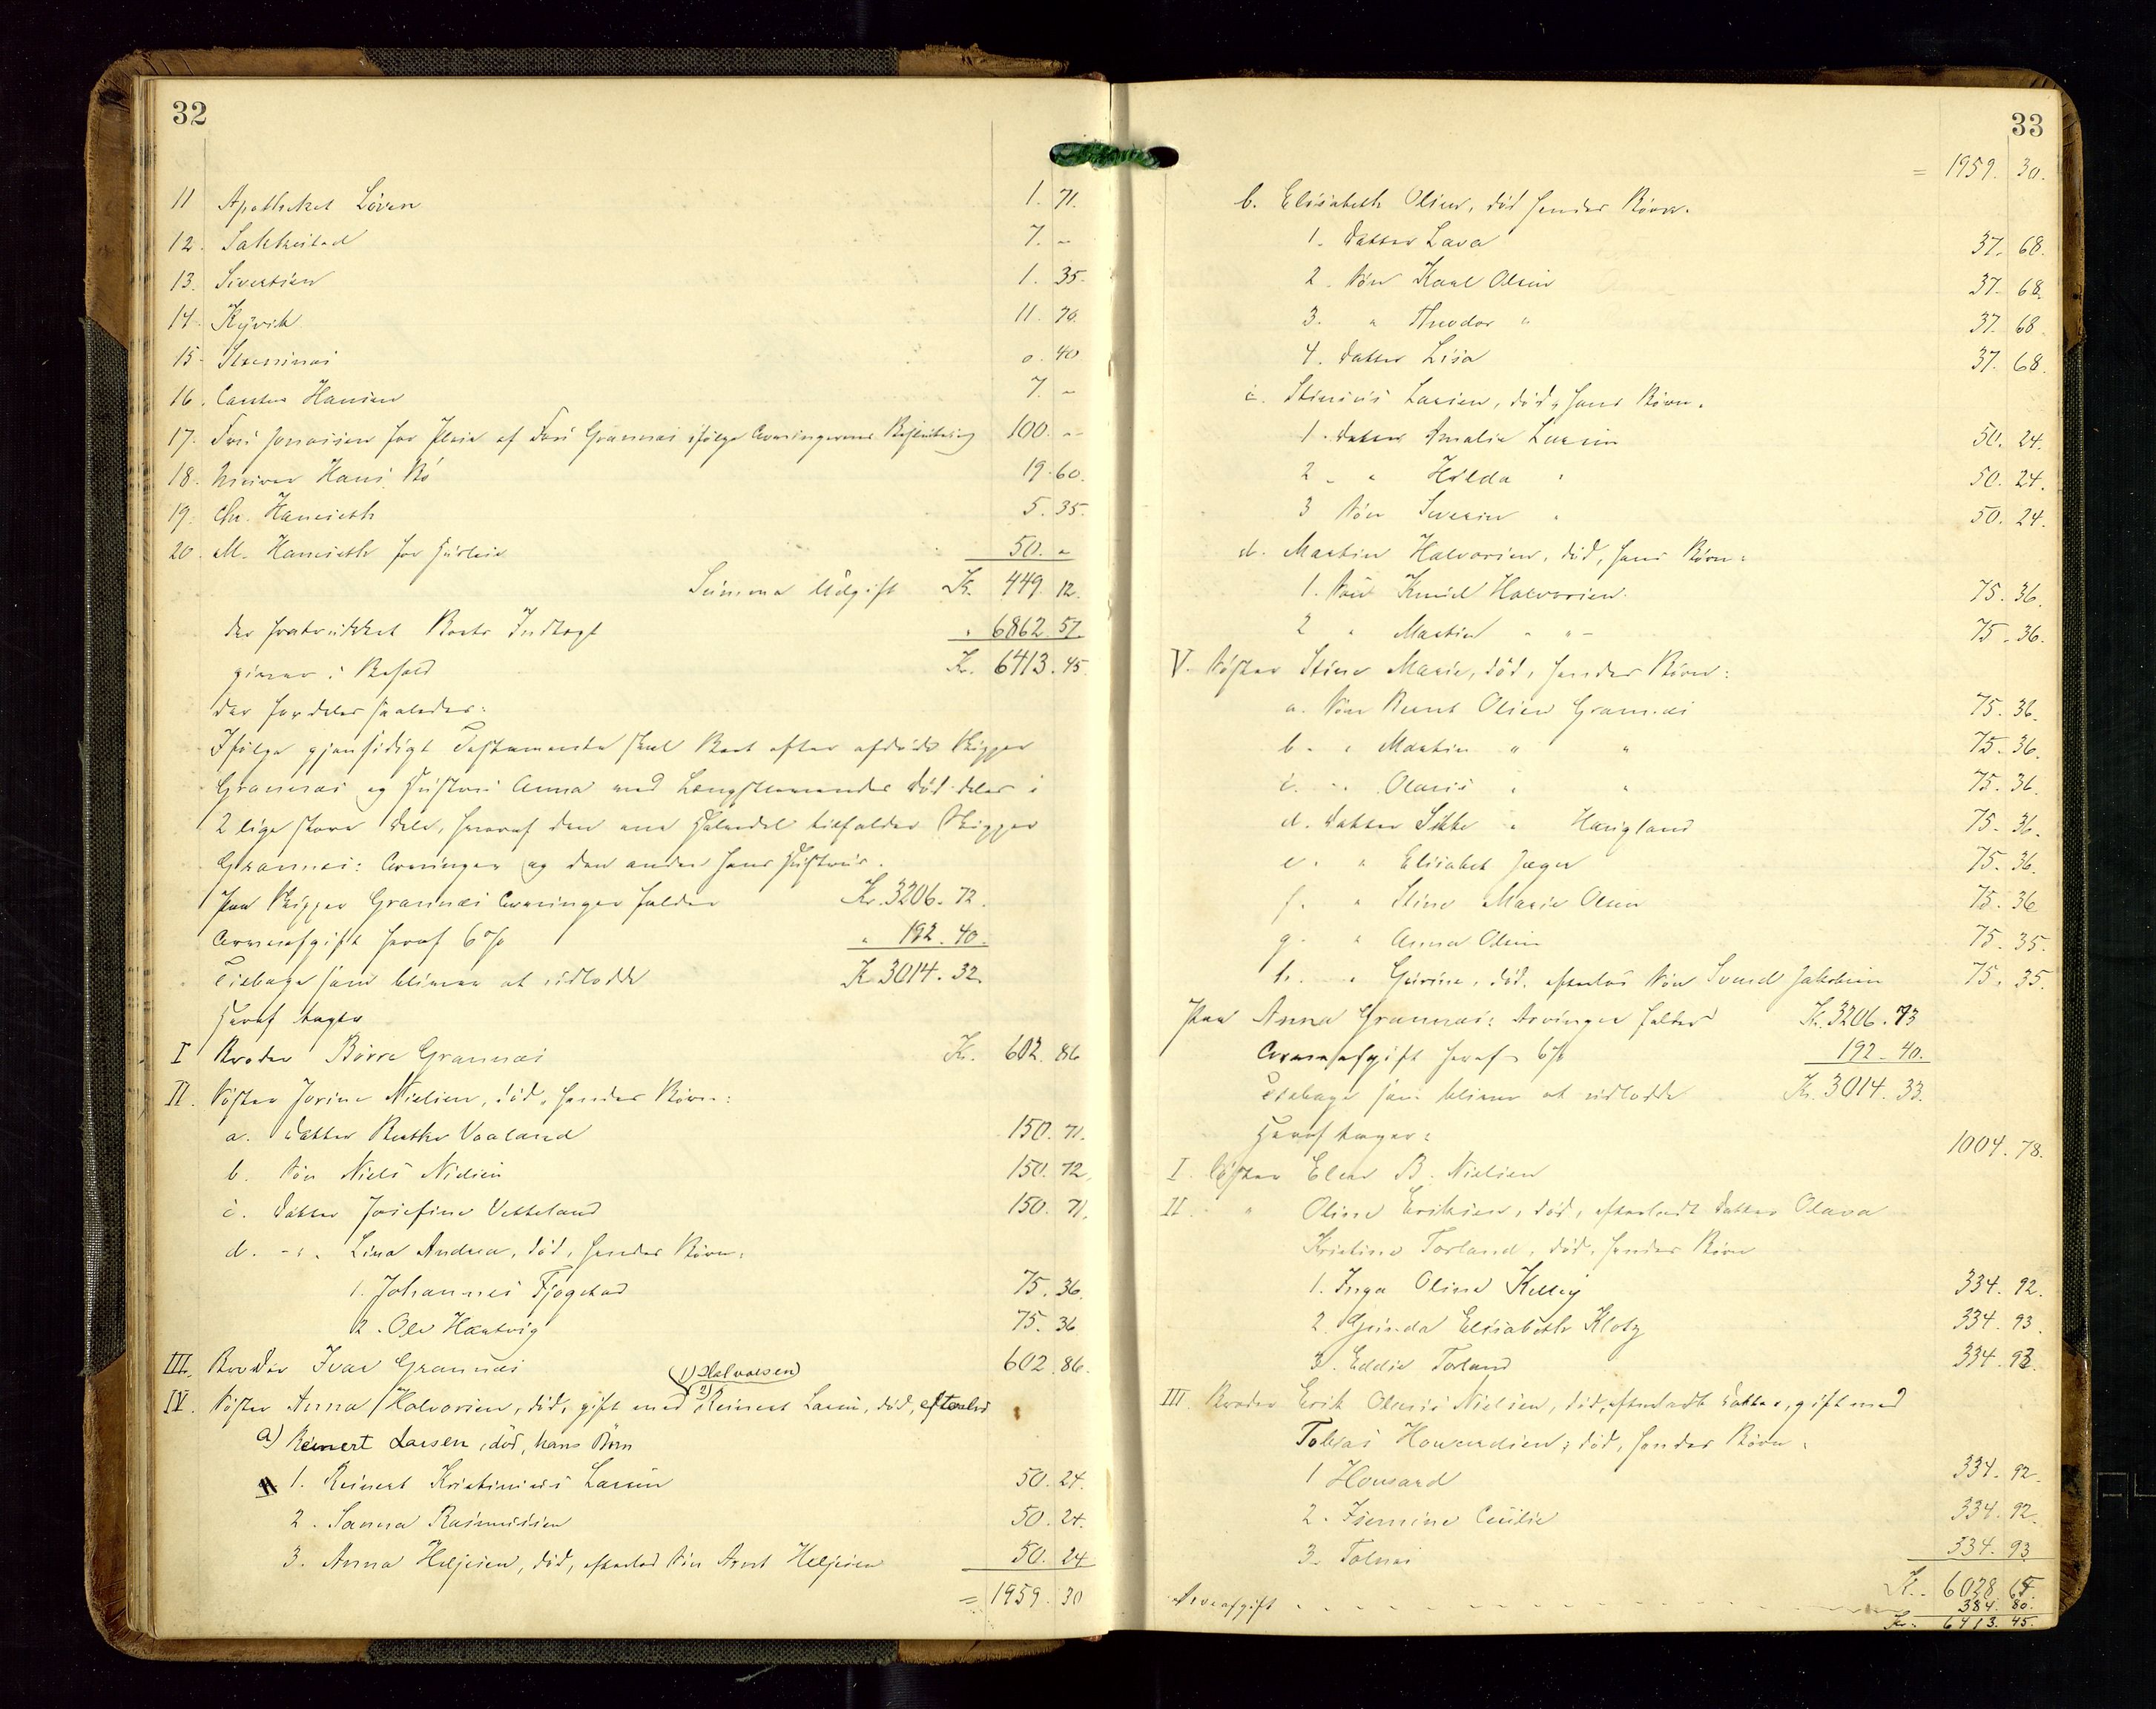 32
11 Apotheket Løven 1. 71.
12. Sakkestad 7. "
13. Sivertsen 1. 35.
14. Kyvik 11. 70.
15. 0. 40
16. Hansen 7. "
17. for Pleie af Grannæs ifølge Arvingernes Beslutning 100. "
18. Hans Bø 19. 60.
19. Chr. Hanseth 5. 35.
20. M. Hanseth for Husleie 50. "
Summa Udgift Kr. 449. 12.
der fratrukket Boets Indtægt " 6862. 57.
giver i Behold Kr. 6413. 45.
der fordeles saaledes:
Ifølge gjensidigt Testamente skal Boet efter afdøde Skipper
Grannæs og Hustru Anna ved Længstlevendes Død deles i
2 lige store Dele, hvoraf den ene Halvdel tilfalder Skipper
Grannæs: Arvinger og den anden hans Hustrus.
Paa Skipper Grannæs Arvinger falder Kr. 3206. 72.
Arveafgift heraf 6 % " 192. 40.
Tilbage som bliver at udlodde Kr. 3014. 32.
Heraf tager
I Broder Børre Grannæs Kr. 602. 86
II. Søster Jorine Nielsen, død, hendes Børn:
a. Datter Berthe Vaaland 150. 71.
b. Søn Niels Nielsen 150. 72.
c. Datter Josefine Vetteland 150. 71.
d. -"- Lina Andrea, død, hendes Børn:
1. Johannes Fjogstad 75. 36.
2. Ole Hantvig 75. 36
III. Broder Ivar Grannæs 602. 86.
1) Halvorsen)
IV. Søster Anna Halvorsen, død, gift med 2) Reinert Larsen, død, efterlod
a) Reinert Larsen, død, hans Børn
1. Reinert Kristinius Larsen 50. 24.
2. Sanna Rasmussen 50. 24.
3. Anna Heljesen, død, efterlod Søn Arnt Heljesen 50. 24
= 1959. 30
33
= 1959. 30.
b. Elisabeth Olsen, død hendes Børn.
1. Datter Lava 37. 68.
2. Søn Karl Olsen 37. 68.
3. " Theodor " 37. 68.
4. Datter Lisa 37. 68.
c. Stinius Larsen, død, hans Børn.
1. Datter Amalie Larsen 50. 24.
2. " Hilda " 50. 24.
3 Søn Severin " 50. 24.
d. Martin Halvorsen, død, hans Børn:
1. Søn Knud Halvorsen. 75. 36.
2 " Martin " " - 75. 36.
V. Søster Stine Marie, død, hendes Børn:
a. Søn Bernt Olsen Grannæs 75. 36.
b. " Martin " " 75. 36.
c. " Olaus " " 75. 36.
d. Datter Sikke " Haugland 75. 36.
e. " Elisabet Jæger 75. 36.
f. " Stine Marie Olsen 75. 36
g. " Anna Olsen 75. 35.
h. " Gurine, død, efterlod Søn Svend Jakobsen 75. 35.
Paa Anna Grannæs: Arvinger falder Kr. 3206. 73
Arveafgift heraf 6 % 192. 40.
Tilbage som bliver at udlodde Kr. 3014. 33.
Heraf tager:
I Søster Elen B. Nielsen 1004. 78.
II. " Oline Eriksen, død, efterladt Datter Olava
Kristine Torland, død, hendes Børn
1. Inga Oline Kelley 334. 92.
2. Gunda Elisabeth Klotz 334. 93.
3. Eddie Torland 334. 93.
III. Broder Erik Olaus Nielsen, død, efterladt Datter, gift med
Tobias Housardsen, død, hendes Børn.
1 Housard 334. 92.
2. Cecilie 334. 92.
3. Tobias 334. 93
Kr. 6028. 65.
Arveafgift - - - 384. 80.
Kr. 6413. 45.